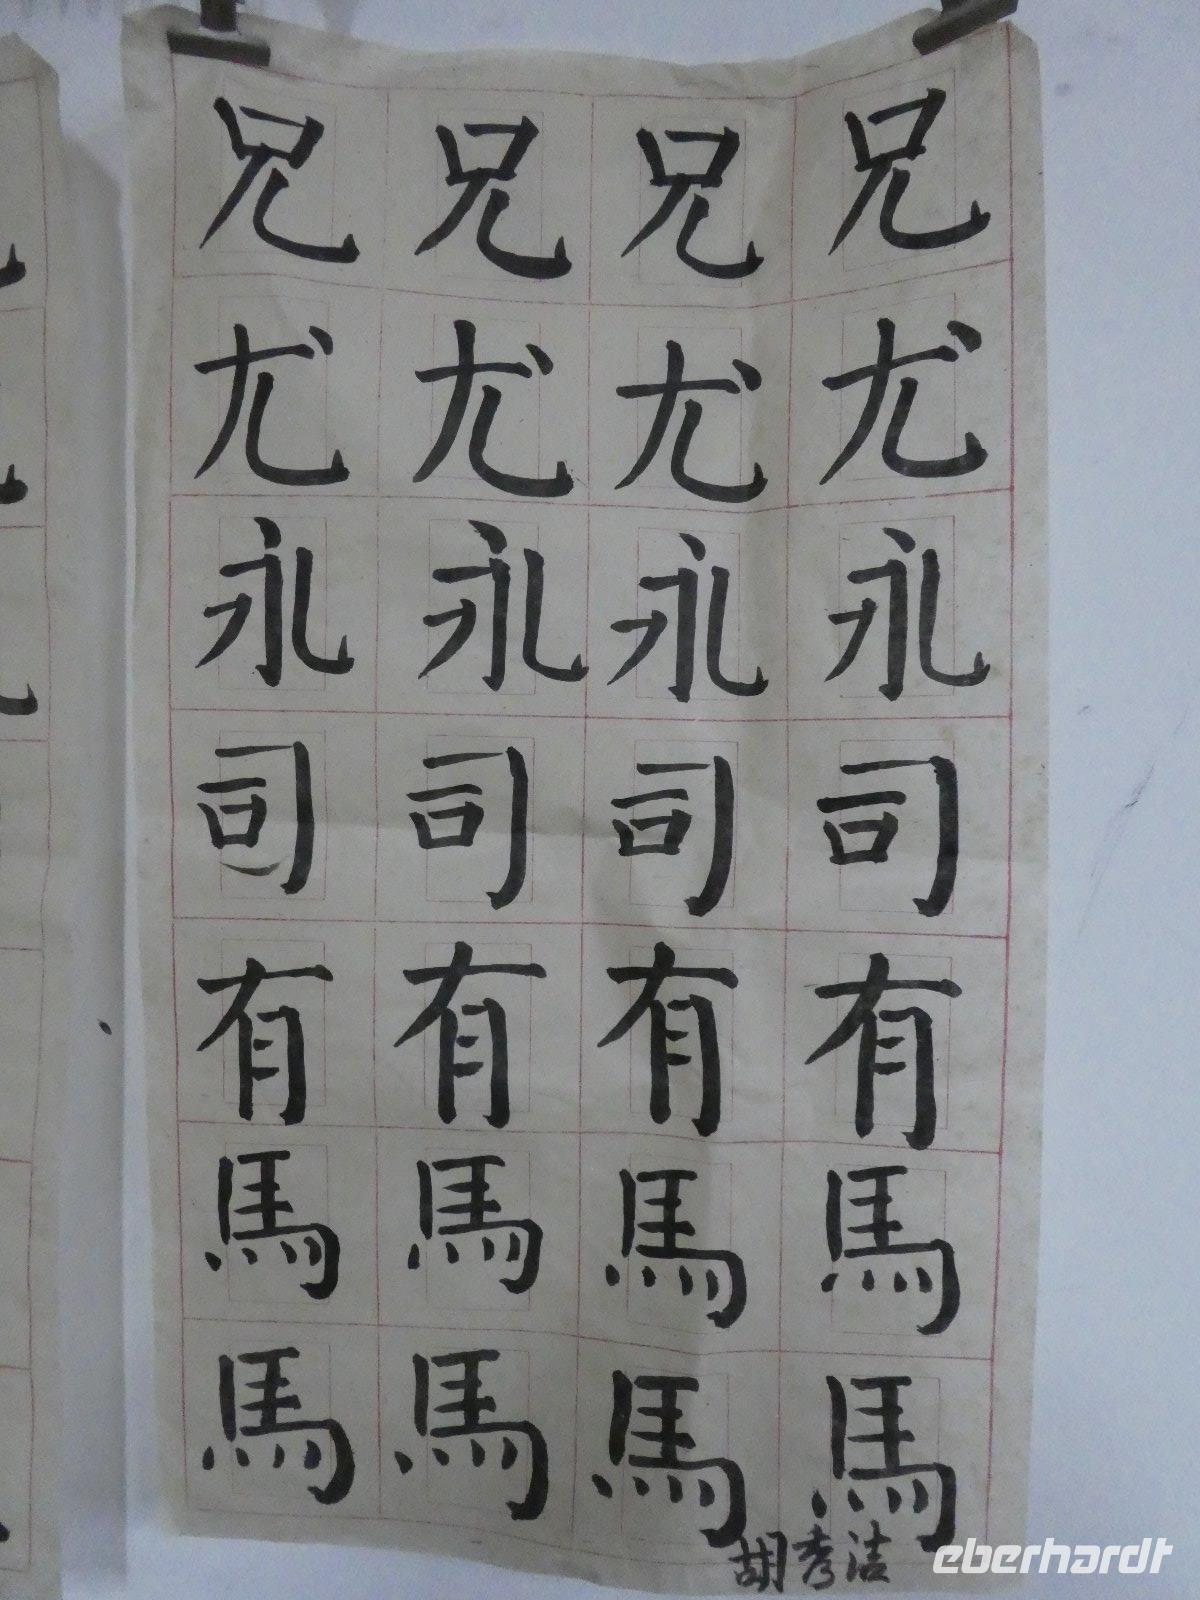 兄兄兄兄
尤尤尤尤
永永永永
司司司司
有有有有
馬馬馬馬
馬馬馬馬
胡秀洁
eberhardt